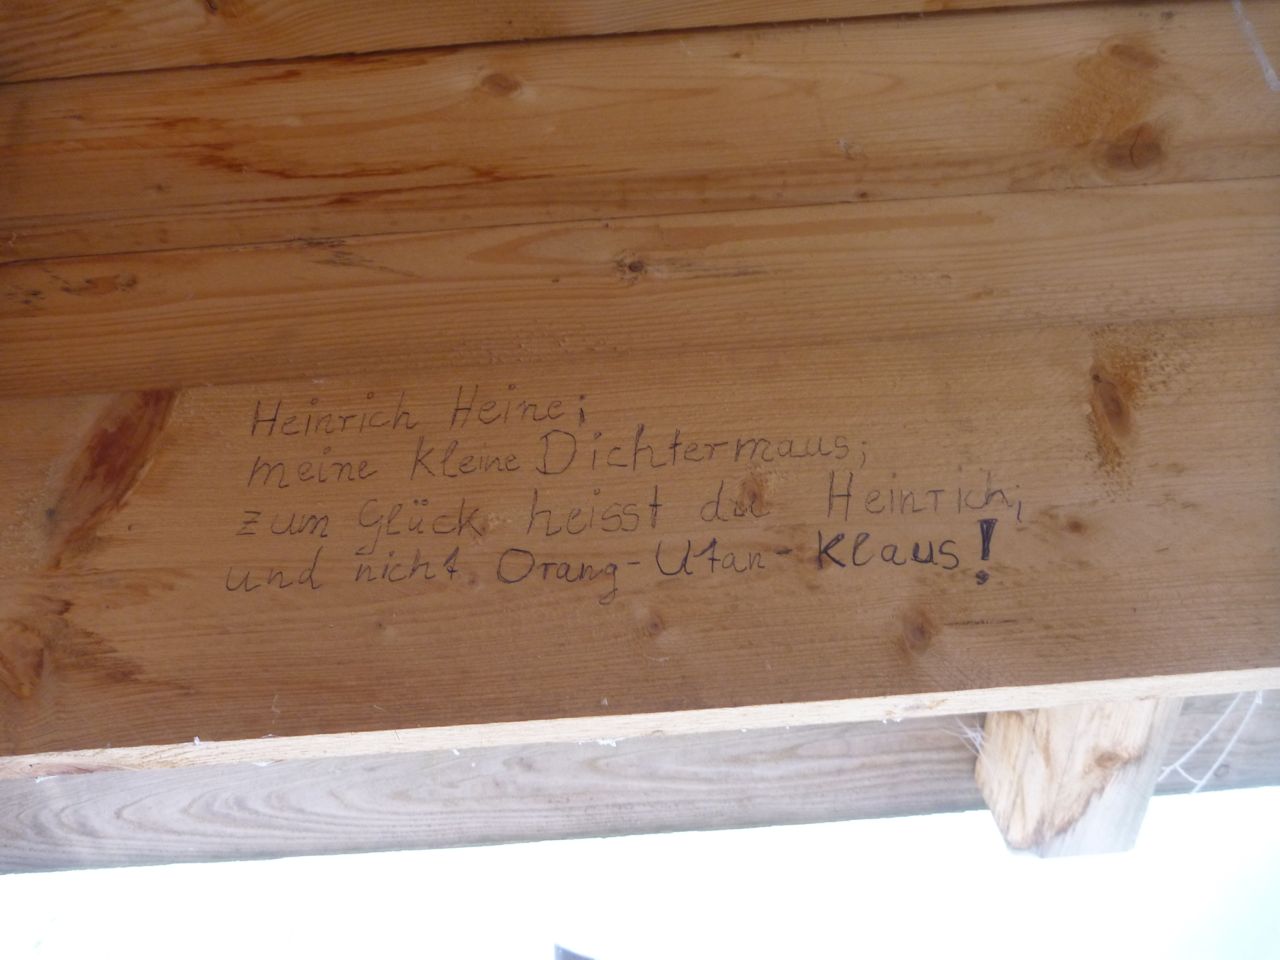 Heinrich Heine;
meine kleine Dichtermaus;
zum Glück heisst du Heinrich;
und nicht Orang-Utan-Klaus!